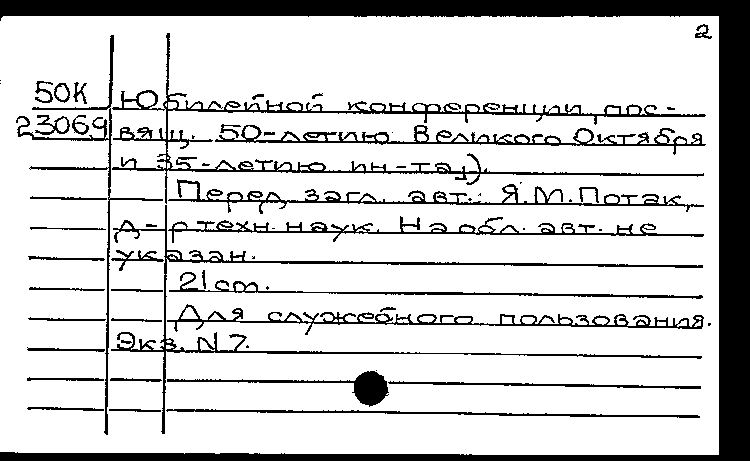 2
50К Юбилейной конференции, пос-
23069 вящ. 50-летию Великого Октября
и 35-летию ин-та).
Перед загл. авт.: Я.М.Потак,
д-р техн. наук. На обл. авт. не
указан.
21 cm.
Для служебного пользования.
Экз. N 7.